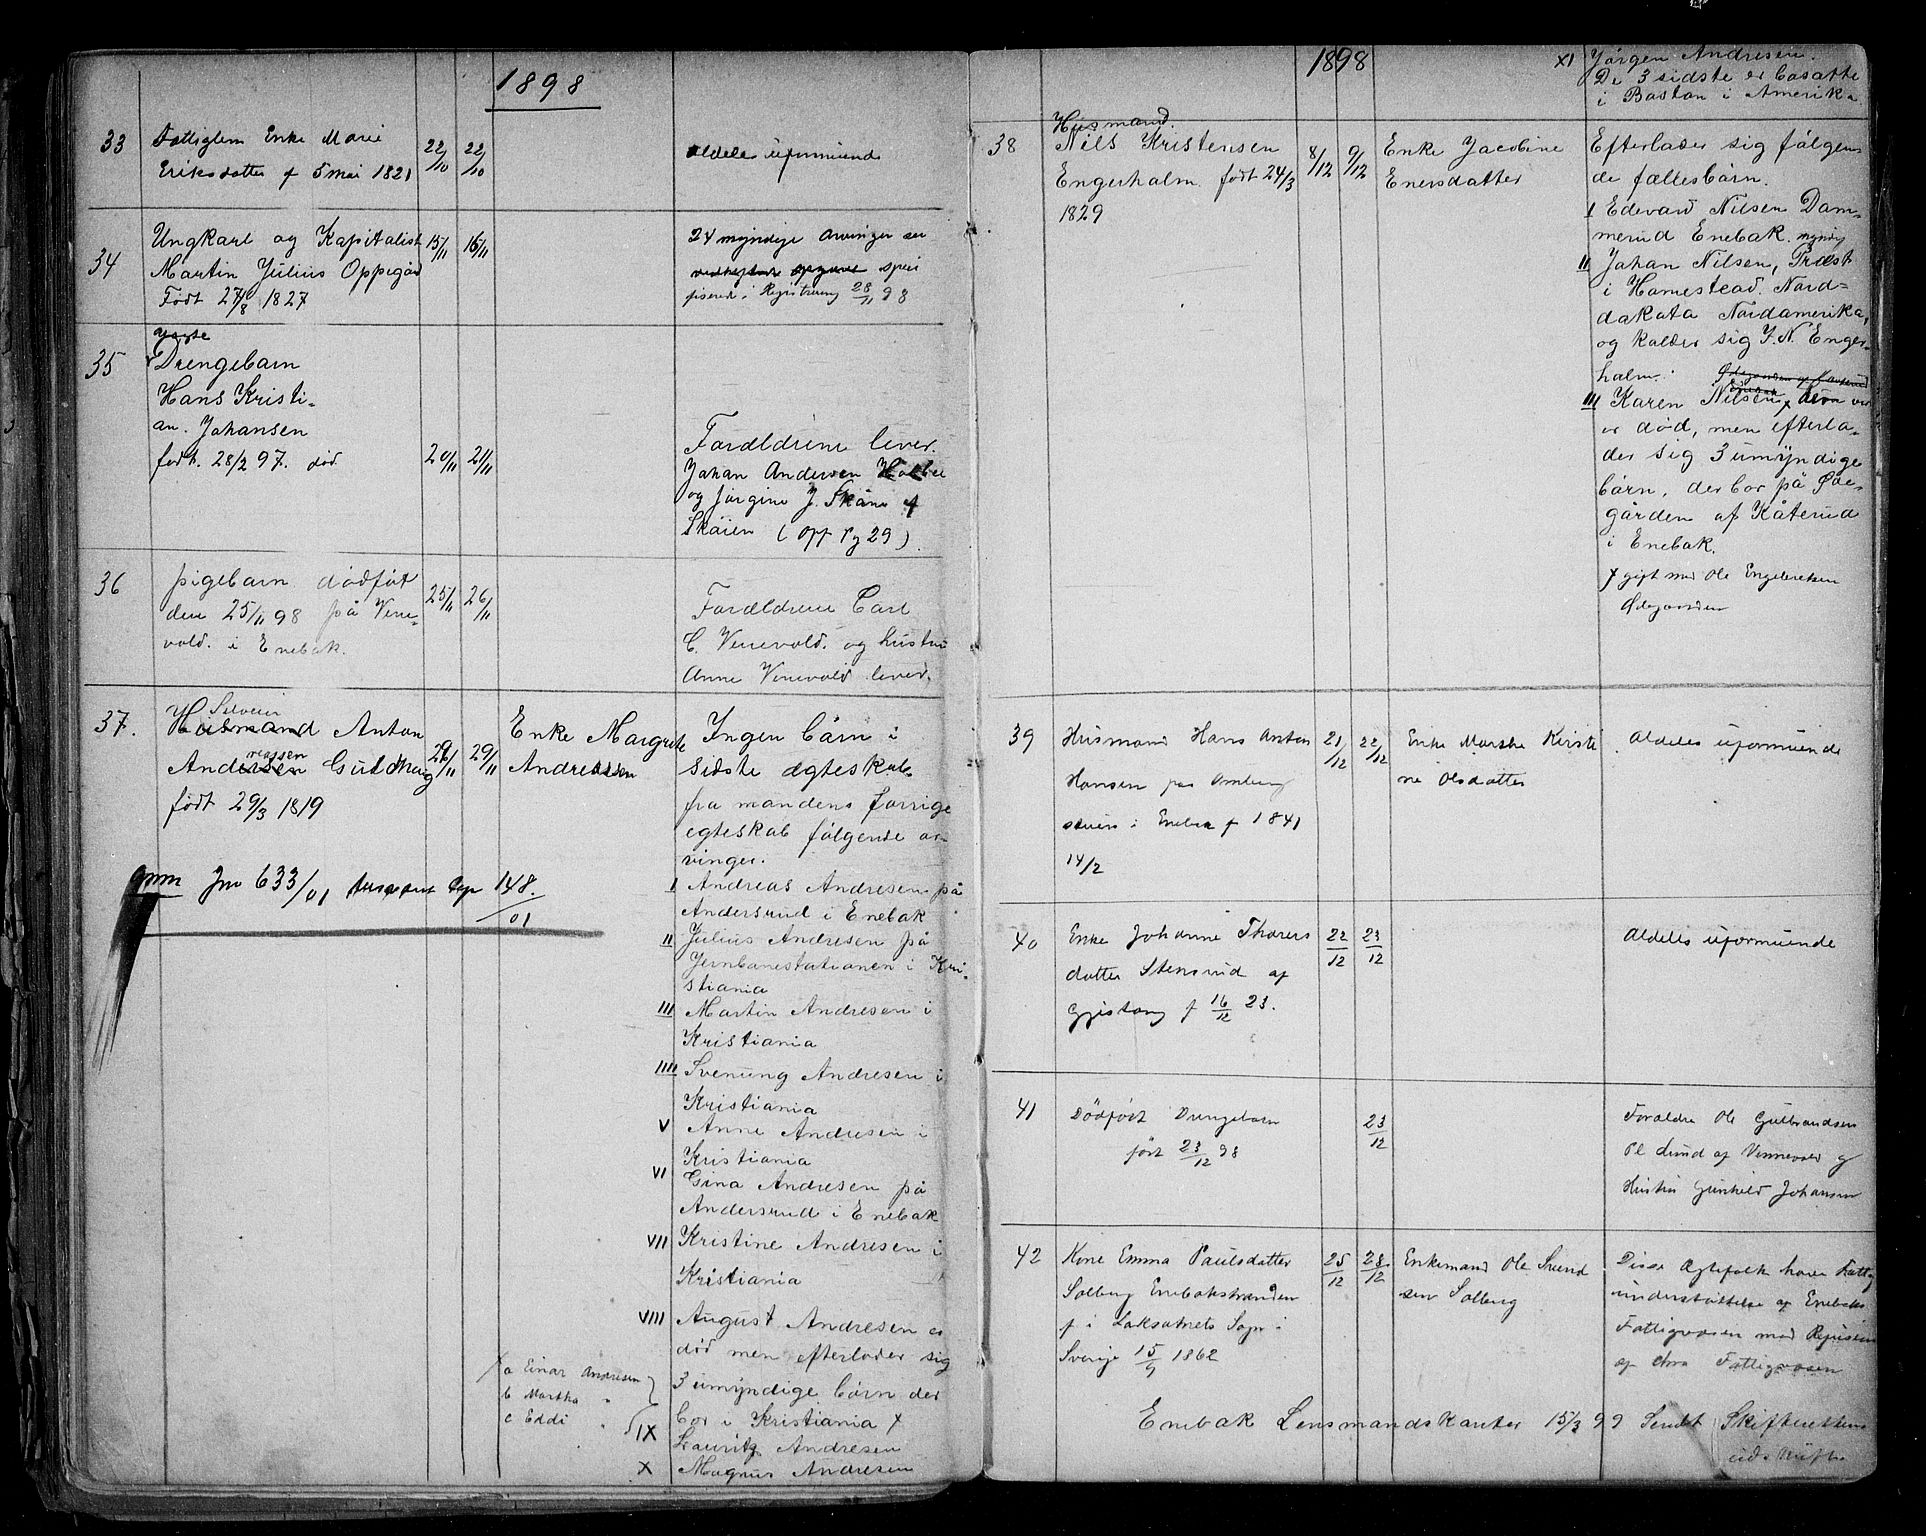 1898
33 Fattiglem Enke Marie 22/10 22/10 aldeles uformuende
Eriksdatter f 5 mai 1821
34 Ungkarl og Kapitalist 15/11 16/11 24 myndige Arvinger se
Martin Julius Oppegård
Født 27/8 1827 Registrering 28/11 98
35 Drengebarn
Hans Kristi-
an. Johansen
født. 28/2 97. død 20/11 21/11 Forældrene lever.
Johan Andersen
og Jørgine J. Skåne af
Skåien (opf Pg 29).
36 pigebarn dødføt 25/11 26/11
den 25/11 98 på Vene- Forældrene Carl
vold. i Enebak. C. Venevold. og hustru
Anne Venevold lever.
37. Selveier
Husmand Anton 29/11 29/11 Enke Margrete Ingen bårn i
Andersen Guldhaug Andreassen sidste ægteskab
reassen
født 29/3 1819 fra mandens forrige
egteskab følgende ar-
vinger.
Jno 633/01 148./01
I Andreas Andresen på
Andersrud i Enebak
II Julius Andresen på
Jernbanestationen i Kri-
stiania
III Martin Andresen i
Kristiania
IIII Svenung Andresen i
Kristiania
V Anne Andresen i
Kristiania
VI Gina Andresen på
Andersrud i Enebak
VII Kristine Andresen i
Kristiania
VIII August Andresen er
død men efterlader sig
3 umyndige bårn der
bor i Kristiania x
x a Einar Andresen
b Martha "
c Eddi "
IX Lauritz Andresen
X Magnus Andresen
1898
XI Jørgen Andresen.
De 3 sidste er bosatte
i Boston i Amerika
38 Husmand.
Nils Kristensen 8/12 9/12 Enke Jacobine Efterlader sig følgen-
Engerholm født 24/3 Enersdatter de fællesbårn.
1829
I Edevard Nilsen Dam-
merud Enebak. myndig
II Johan Nilsen, Præst
i Homestead. Nord-
dakota Nordamerika,
og kalder sig J. N. Enger-
holm.
III Karen Nilsen x
er død, men efterla-
der sig 3 umyndige
bårn, der bor på Øde-
gården af Kåterud
i Enebak.
x gift med Ole Engebretsen
Ødegaarden
39 Husmand Hans Anton 21/12 22/12 Enke Marthe Kirsti- Aldeles uformuende
Hansen paa ne Olsdatter
i Enebak f 1841
14/2
40 Enke Johanne Thores 22/12 23/12 Aldeles uformuende
datter Stensrud af
Gjestang f 16/12 23.
41 Dødfødt Drengebarn 23/12 Forældre Ole Gulbrandsen
født 23/12 98 Lund af Vennevold og
Hustru Gunhild Johansen
42 Kone Emma Paulsdatter 25/12 28/12 Enkemand Ole Svend- Disse Ægtefolk have Fattig
Solberg Enebakstranden sen Solberg understøttelse af Enebaks
f i Laksarnets Sogn i Fattigvæsen med
Sverige 15/9 1862 af Fattigvæsen
Enebak Lensmandskontor 15/3 99 Sendt Skifteretten